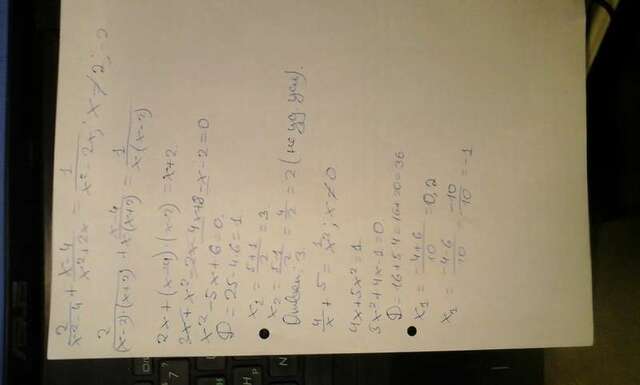 2/(x²-4) + (x-4)/(x²+2x) = 1/(x²-2x); x≠2;-2
2/((x-2)·(x+2)) + (x-4)/(x(x+2)) = 1/(x(x-2))
2x+(x-4)(x-2)=x+2.
2x+x²-2x-4x+8-x-2=0
x²-5x+6=0.
D=25-4·6=1.
x₂=(5+1)/2=3.
x₂=(5-1)/2=4/2=2 (не уд. усл).
Ответ: 3.
4/x+5=1/x²; x≠0
4x+5x²=1.
5x²+4x-1=0.
D=16+5·4=16+20=36
x₁=(-4+6)/10=0,2
x₁=(-4-6)/10=-10/10=-1